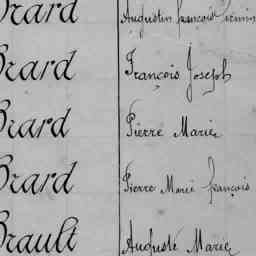 Brard Augustin françois firmin
Brard François Joseph
Brard Pierre Marie
Brard Pierre Marie françois
Brault Auguste Marie